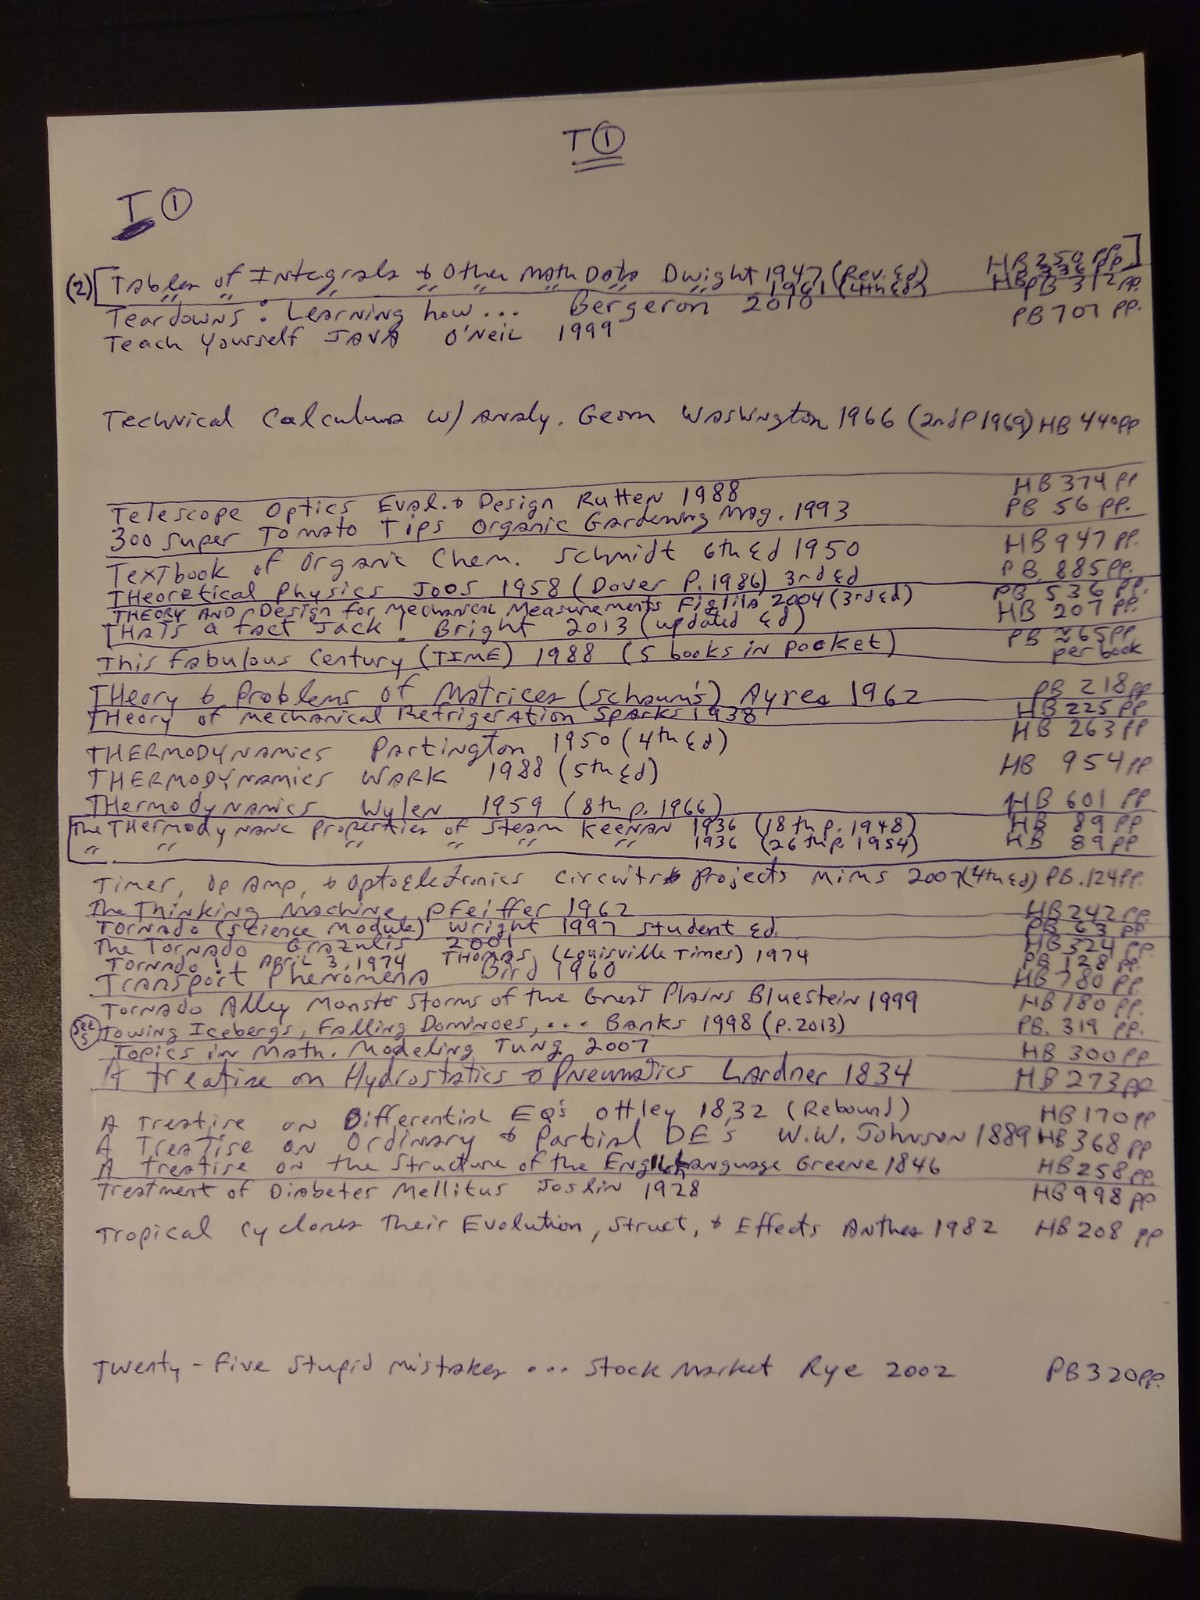 T ①
T ①
(2) [Tables of Integrals & Other Math Data Dwight 1947 (Rev. Ed) HB 250 pp]
" " " " " " 1961 (4th Ed) HB 336 pp
Teardowns: Learning how... Bergeron 2010 PB 312 pp.
Teach Yourself JAVA O'Neil 1999 PB 707 pp.
Technical Calculus w/ Analy. Geom Washington 1966 (2nd P 1969) HB 440 pp
Telescope Optics Eval. & Design Rutten 1988 HB 374 pp
300 Super Tomato Tips Organic Gardening Mag. 1993 PB 56 pp.
Textbook of Organic Chem. Schmidt 6th Ed 1950 HB 947 pp.
Theoretical Physics Joos 1958 (Dover P. 1986) 3rd Ed PB 885 pp.
THEORY AND Design for Mechanical Measurements Figliola 2004 (3rd Ed) PB 536 pp.
THATS a fact Jack! Bright 2013 (updated Ed) HB 207 pp.
This Fabulous Century (TIME) 1988 (5 books in pocket) PB ≈65 pp. per book
THeory & Problems of Matrices (Schaum's) Ayres 1962 PB 218 pp
THeory of Mechanical Refrigeration Sparks 1938 HB 225 pp
THERMODYNAMICS Partington 1950 (4th Ed) HB 263 pp
THERMODYNAMICS WARK 1988 (5th Ed) HB 954 pp.
THermodynamics Wylen 1959 (8th p. 1966) HB 601 pp
[The THermodynamic Properties of Steam Keenan 1936 (18th p. 1948) HB 89 pp
" " " " " 1936 (26th p. 1954) HB 89 pp
Timer, Op Amp, & Optoelectronics Circuits & Projects Mims 2007 (4th Ed) PB. 124 pp.
The Thinking Machine Pfeiffer 1962 HB 242 pp.
TORNADO (Science Module) Wright 1997 Student Ed. PB 63 pp.
The Tornado Grazulis 2001 HB 324 pp
Tornado! April 3, 1974 Thomas (Louisville Times) 1974 PB 128 pp.
Transport Phenomena Bird 1960 HB 780 pp.
Tornado Alley Monster Storms of the Great Plains Bluestein 1999 HB 180 pp.
Towing Icebergs, Falling Dominoes,... Banks 1998 (p. 2013) PB. 319 pp.
Topics in Math. Modeling Tung 2007 HB 300 pp
A treatise on Hydrostatics & Pneumatics Lardner 1834 HB 273 pp
A Treatise on Differential EQ's Ottley 1832 (Rebound) HB 170 pp
A Treatise on Ordinary & Partial DE's W.W. Johnson 1889 HB 368 pp
A treatise on the Structure of the English Language Greene 1846 HB 258 pp.
Treatment of Diabetes Mellitus Joslin 1928 HB 998 pp
Tropical Cyclones Their Evolution, Struct, & Effects Anthes 1982 HB 208 pp
Twenty-Five Stupid Mistakes ... Stock Market Rye 2002 PB 320 pp.